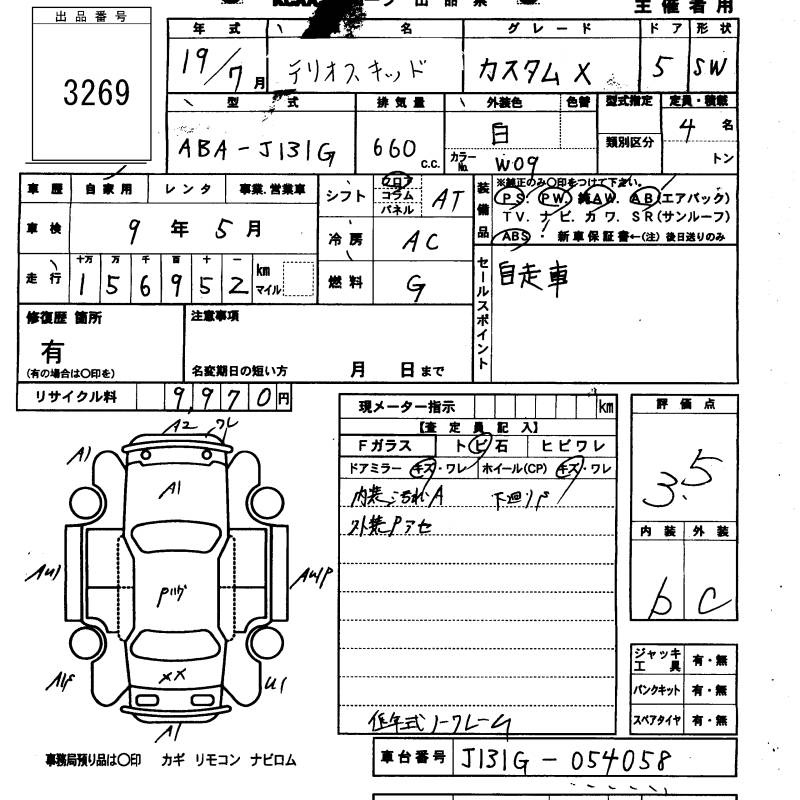 出品番号
3269
主催者用
年式 名 グレード ドア 形状
19/7月 テリオスキッド カスタムX 5 SW
型式 排気量 外装色 色替 型式指定 定員・積載
ABA-J131G 660 c.c. 白 類別区分 4名
カラーNo. W09 トン
車歴 自家用 レンタ 事業.営業車
シフト フロア コラム パネル AT
装備品 ※純正のみ〇印をつけて下さい。
PS. PW. 純AW. AB(エアバック)
TV. ナビ. カワ. SR(サンルーフ)
ABS. 新車保証書←(注)後日送りのみ
車検 9年5月
冷房 AC
走行 十万 万 千 百 十 一
156952 km マイル
燃料 G
セールスポイント 自走車
修復歴 箇所 注意事項
有
(有の場合は〇印を) 名変期日の短い方 月 日まで
リサイクル料 9,970円
現メーター指示 km
【査定員記入】
Fガラス トビ石 ヒビワレ
ドアミラー キズ・ワレ ホイール(CP) キズ・ワレ
内装汚れA 下廻りP
外装Pアセ
低年式ノークレーム
評価点
3.5
内装 外装
b C
A2 ワレ
A1
A1
AU1
AU1P
Pハゲ
A1P
XX
U1
A1
ジャッキ工具 有・無
パンクキット 有・無
スペアタイヤ 有・無
事務局預り品は〇印 カギ リモコン ナビロム
車台番号 J131G-054058